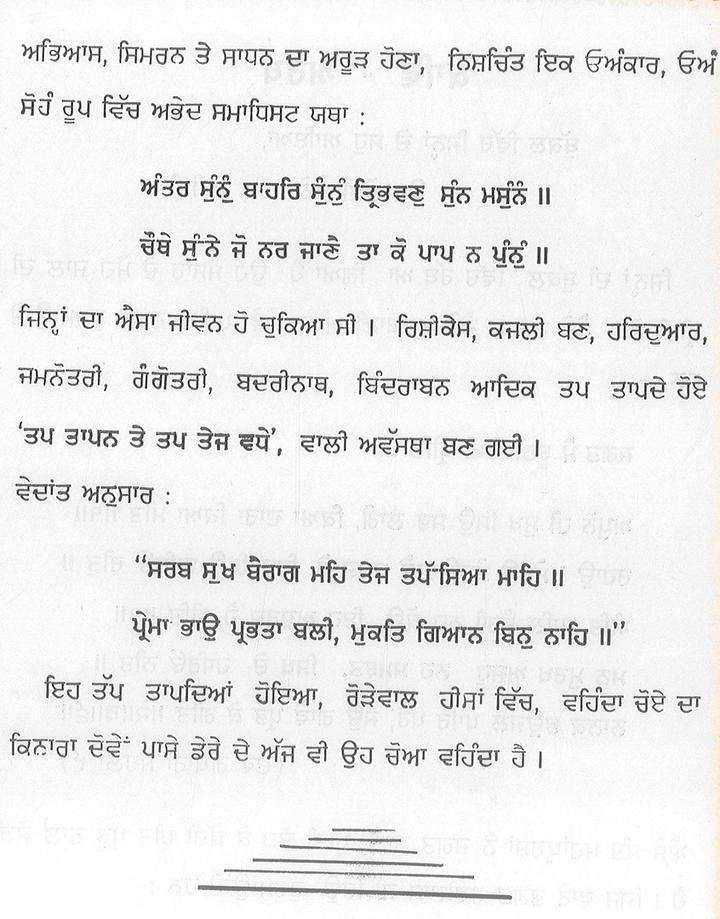 ਅਭਿਆਸ, ਸਿਮਰਨ ਤੇ ਸਾਧਨ ਦਾ ਅਰੂੜ ਹੋਣਾ, ਨਿਸ਼ਚਿੰਤ ਇਕ ਓਅੰਕਾਰ, ਓਅੰ
ਸੋਹੰ ਰੂਪ ਵਿੱਚ ਅਭੇਦ ਸਮਾਧਿਸਟ ਯਥਾ :
ਅੰਤਰ ਸੁੰਨੁੰ ਬਾਹਰਿ ਸੁੰਨੁੰ ਤ੍ਰਿਭਵਣੁ ਸੁੰਨ ਮਸੁੰਨੰ ॥
ਚੌਥੇ ਸੁੰਨੇ ਜੋ ਨਰ ਜਾਣੈ ਤਾ ਕੋ ਪਾਪ ਨ ਪੁੰਨੰ ॥
ਜਿਨ੍ਹਾਂ ਦਾ ਐਸਾ ਜੀਵਨ ਹੋ ਚੁਕਿਆ ਸੀ । ਰਿਸ਼ੀਕੇਸ, ਕਜਲੀ ਬਣ, ਹਰਿਦੁਆਰ,
ਜਮਨੋਤਰੀ, ਗੰਗੋਤਰੀ, ਬਦਰੀਨਾਥ, ਬਿੰਦਰਾਬਨ ਆਦਿਕ ਤਪ ਤਾਪਦੇ ਹੋਏ
‘ਤਪ ਤਾਪਨ ਤੇ ਤਪ ਤੇਜ ਵਧੇ’, ਵਾਲੀ ਅਵੱਸਥਾ ਬਣ ਗਈ ।
ਵੇਦਾਂਤ ਅਨੁਸਾਰ :
“ਸਰਬ ਸੁਖ ਬੈਰਾਗ ਮਹਿ ਤੇਜ ਤਪੱਸਿਆ ਮਾਹਿ ॥
ਪ੍ਰੇਮਾ ਭਾਉ ਪ੍ਰਭਤਾ ਬਲੀ, ਮੁਕਤਿ ਗਿਆਨ ਬਿਨੁ ਨਾਹਿ ॥”
ਇਹ ਤੱਪ ਤਾਪਦਿਆਂ ਹੋਇਆ, ਰੋੜੇਵਾਲ ਹੀਸਾਂ ਵਿੱਚ, ਵਹਿੰਦਾ ਚੋਏ ਦਾ
ਕਿਨਾਰਾ ਦੋਵੇਂ ਪਾਸੇ ਡੇਰੇ ਦੇ ਅੱਜ ਵੀ ਉਹ ਚੋਆ ਵਹਿੰਦਾ ਹੈ ।